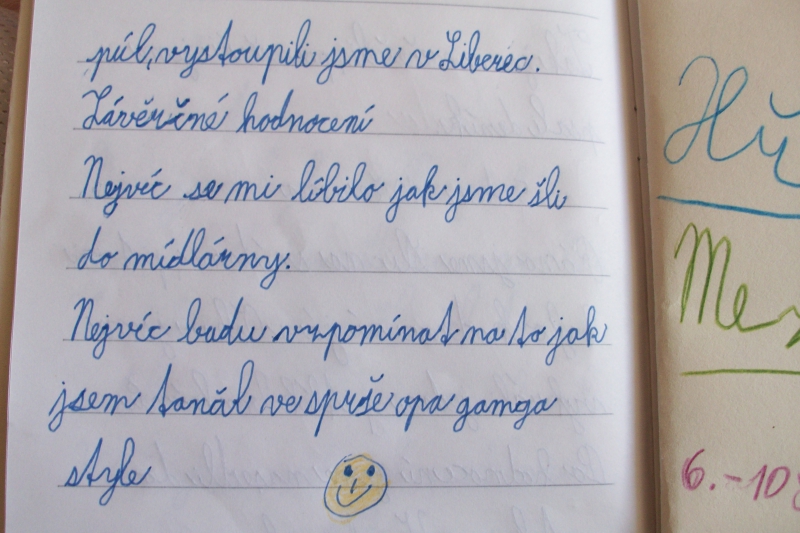 púl, vystoupili jsme v Liberec.
Závěrčné hodnocení
Nejvíc se mi líbilo jak jsme šli
do mídlárny.
Nejvíc badu vzpomínat na to jak
jsem tančil ve sprše opa gamga
style
6.-10